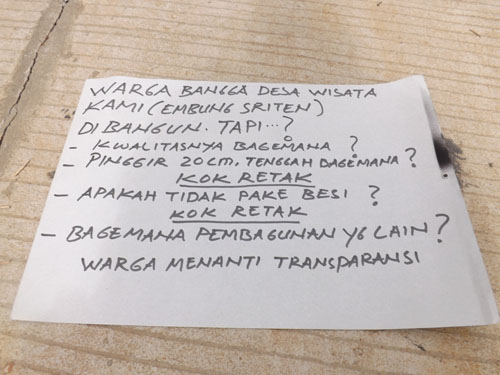 WARGA BANGGA DESA WISATA
KAMI (EMBUNG SRITEN)
DIBANGUN. TAPI...?
- KWALITASNYA BAGEMANA ?
- PINGGIR 20 CM, TENGAH BAGEMANA ?
KOK RETAK
- APAKAH TIDAK PAKE BESI ?
KOK RETAK
- BAGEMANA PEMBAGUNAN YG LAIN ?
WARGA MENANTI TRANSPARANSI